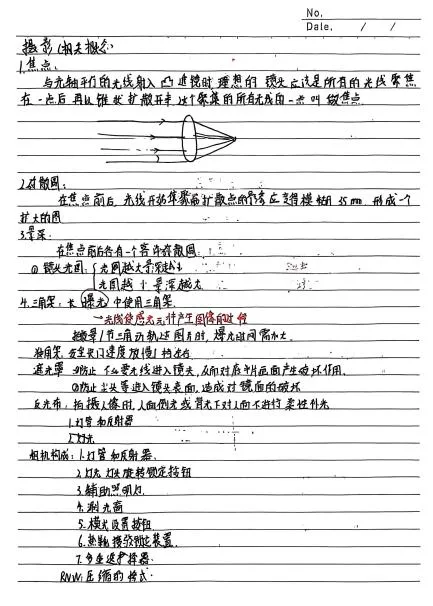 No.
Date. / /
摄影(相关概念)
1.焦点:
与光轴平行的光线射入凸透镜时理想的镜头应该是所有的光线聚焦
在一点后再以锥状扩散开来这个聚集的所有光线的一点叫做焦点
2.弥散圆:
在焦点前后,光线开始聚散扩散点的影像变得模糊 形成一个
扩大的圆
3.景深:
在焦点前后各有一个容许弥散圆
① 镜头光圈: 光圈越大景深越小
光圈越小景深越大
4.三角架: 长曝光中使用三角架
光线使感光元件产生图像的过程
夜景 图片时,曝光时间需加大
独角架 安全快门速度放慢
遮光罩 ①防止不必要光线进入镜头,从而对底片画面产生破坏作用.
②防止尘头等进入镜头表面,造成对镜面的破坏
反光布: 拍摄人像时,人面侧光或背光下对人面不进行柔性补光
1.灯管和反射器
2.灯光
相机构成: 1.灯管和反射器.
2.灯光 灯头旋转锁定按钮
3.辅助照明灯.
4.测光窗
5.模式设置按钮
6.热靴接纷锁定装置.
7.多重选择器.
RNW:压缩的格式.